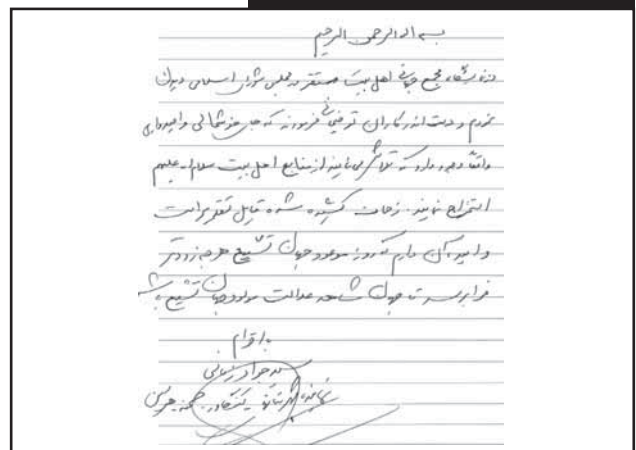 بسم الله الرحمن الرحیم
مجمع جهانی اهل بیت مستقر در مجلس شورای اسلامی دیدن
نمودم و دست اندرکاران توضیحاتی فرمودند که جای خوشحالی و امیدواری
واقعاً وجود دارد که تلاش می‌نمایند از منابع اهل بیت سلام الله علیهم
استخراج نمایند. زحمات کشیده شده قابل تقدیر است
و امید آن دارم که روز موعود جهان تشیع هرچه زودتر
فرا برسد تا جهان شاهد عدالت مولود جهان تشیع باشد
با احترام
سید جواد
نماینده